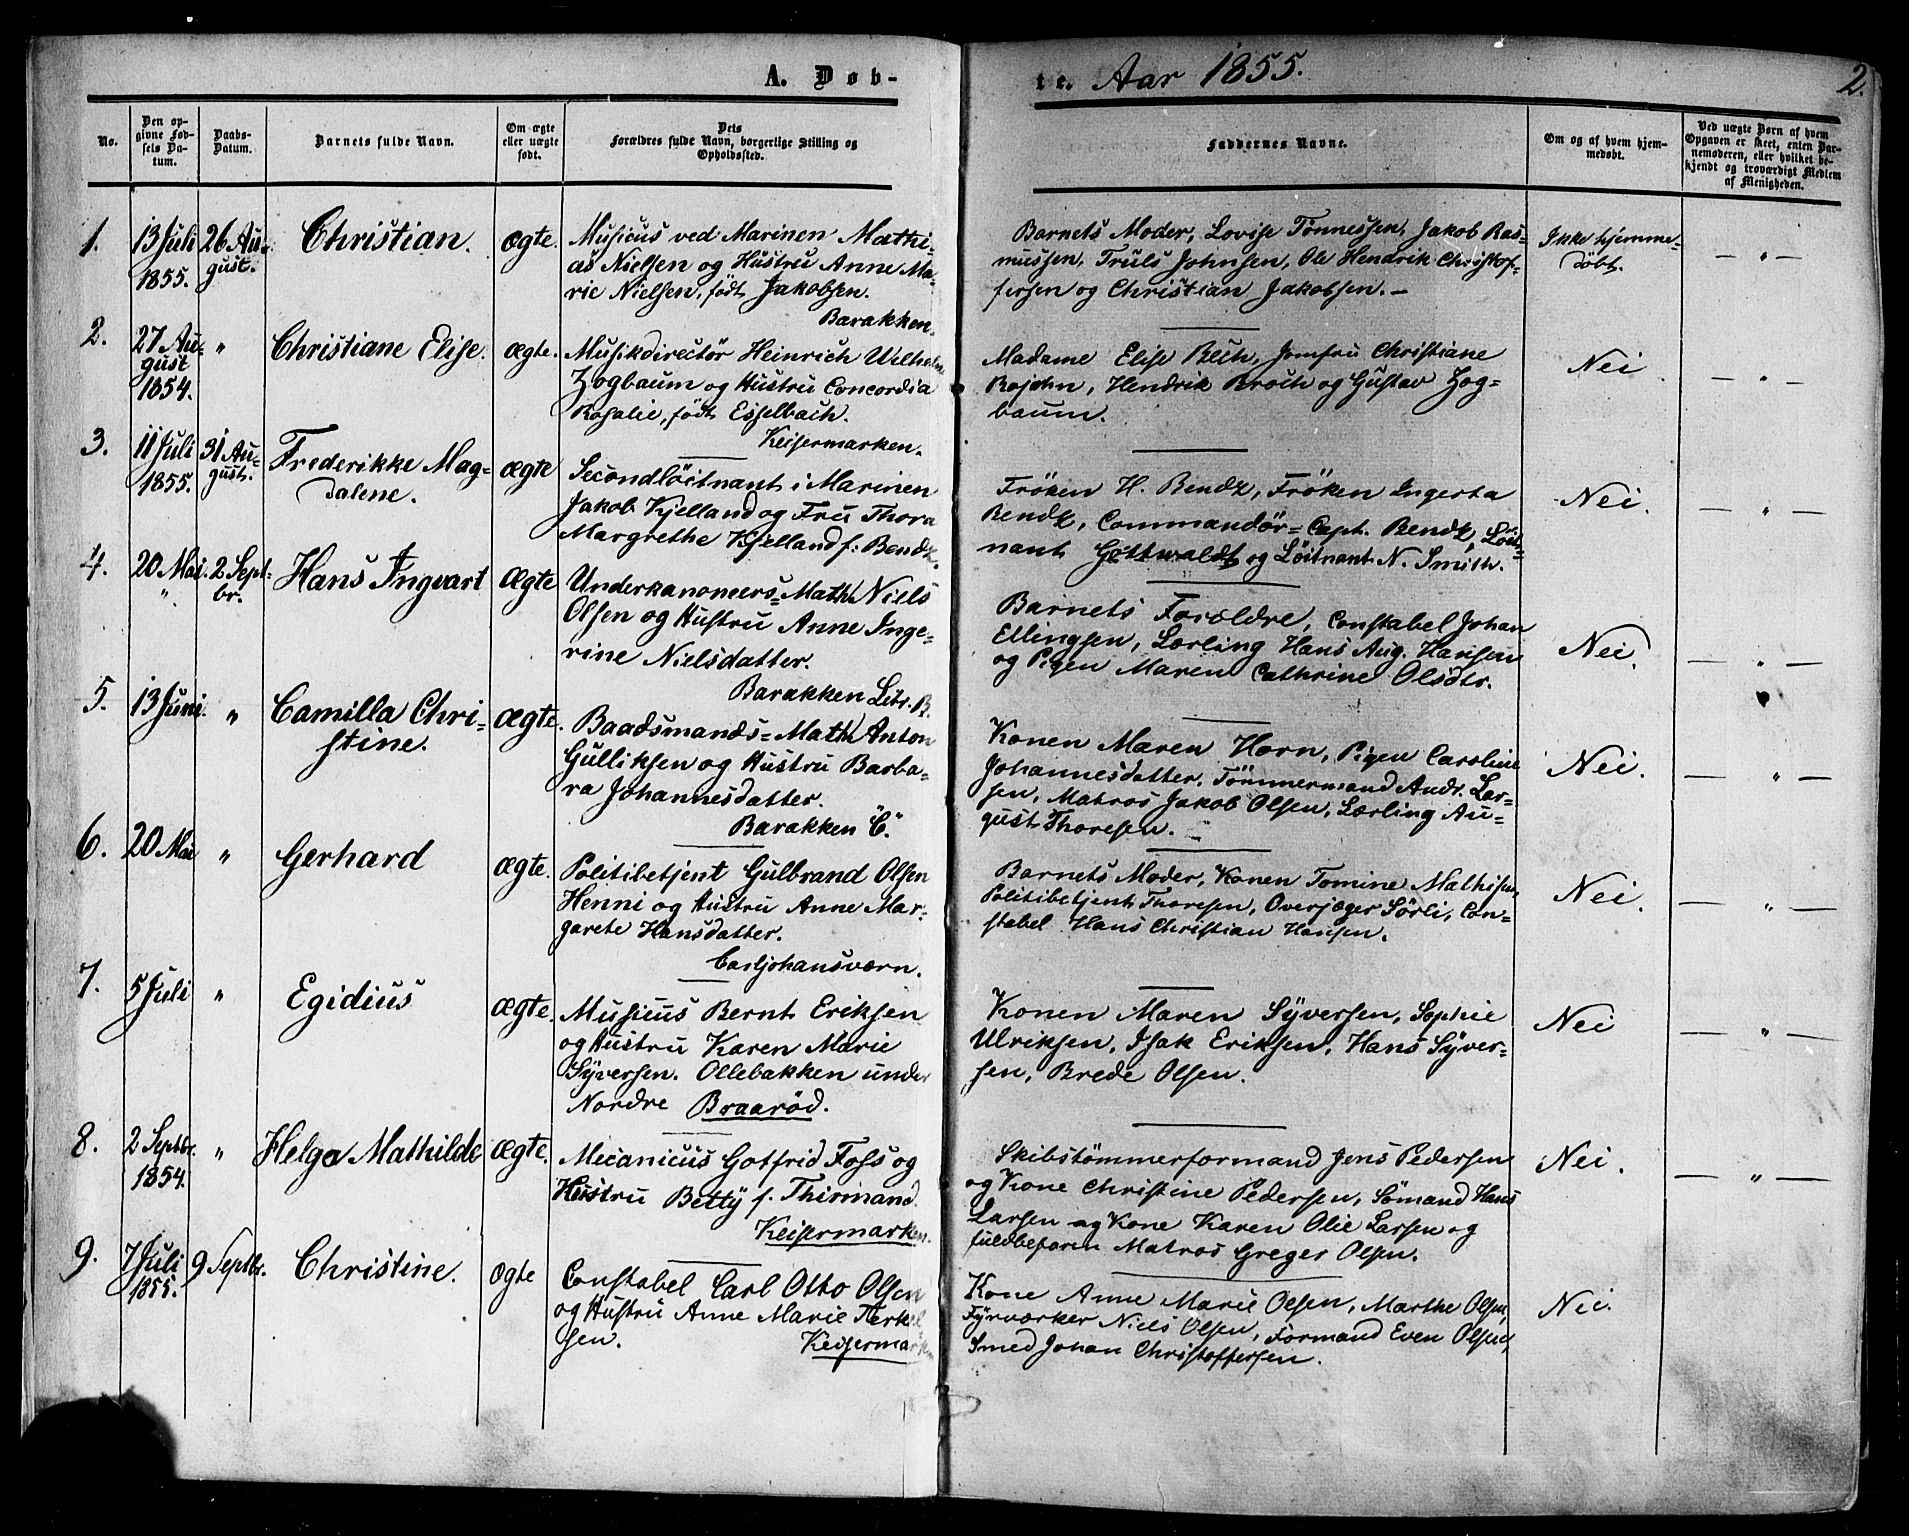 A. Døb-
te. Aar 1855.
2.
No.
Den op-
givne Fød-
sels Da-
tum.
Daabs-
Datum.
Barnets fulde Navn.
Om ægte
eller uægte
født.
Dets
Forældres fulde Navn, borgerlige Stilling og
Opholdssted.
Faddernes Navne.
Om og af hvem hjem-
medøbt.
Ved uægte Børn af hvem
Opgaven er skeet, enten Bar-
nemoderen, eller hvilket be-
kjendt og troværdigt Medlem
af Menigheden.
1.
13 Juli
1855.
26 Au-
gust.
Christian.
ægte.
Musicus ved Marinen Mathi-
as Nielsen og Hustru Anne Ma-
rie Nielsen, født Jakobsen.
Barakken.
Barnets Moder, Lovise Tønnessen, Jakob Ras-
mussen, Truls Johnsen, Ole Hendrik Christof-
fersen og Christian Jakobsen. —
Ikke hjemme-
døbt.
— " —
2.
27 Au-
gust
1854.
"
Christiane Elise.
ægte.
Musikdirectør Heinrich Wilhelm
Zogbaum og Hustru Concordia
Rosalie, født Esselbach.
Keisermarken.
Madame Elise Bech, Jomfru Christiane
Rojahn, Hendrik Broch og Gustav Zog-
baum.
Nei
— " —
3.
11 Juli
1855.
31 Au-
gust.
Frederikke Mag-
dalene.
ægte
Secondlöitnant i Marinen
Jakob Kjelland og Fru Thora
Margrethe Kjelland f: Bendz.
Frøken H. Bendz, Frøken Ingerta
Bendz, Commandør-Capt. Bendz, Löit-
nant Gottwaldt og Löitnant N. Smith.
Nei.
— " —
4.
20 Mai.
"
2 Sept-
br.
Hans Ingvart
ægte
Underkanoneers-Math Niels
Olsen og Hustru Anne Inge-
rine Nielsdatter.
Barakken Litr. B.
Barnets Forældre, Constabel Johan
Ellingsen, Lærling Hans Aug. Hansen
og Pigen Maren Cathrine Olsdtr.
Nei.
— " —
5.
13 Juni.
"
Camilla Chri-
stine.
ægte.
Baadsmands-Math Anton
Gulliksen og Hustru Barba-
ra Johannesdatter.
Barakken "C."
Konen Maren Horn, Pigen Caroline
Johannesdatter, Tømmermand Andr. Lar-
sen, Matros Jakob Olsen, Lærling Au-
gust Thoresen.
Nei.
— " —
6.
20 Mai
"
Gerhard
ægte.
Politibetjent Gulbrand Olsen
Henni og Hustru Anne Mar-
garete Hansdatter.
Carljohansværn.
Barnets Moder, Konen Tomine Mathisen,
Politibetjent Thoresen, Overjæger Sørli, Con-
stabel Hans Christian Hansen.
Nei.
— " —
7.
5 Juli
"
Egidius
ægte.
Musicus Bernt Eriksen
og Hustru Karen Marie
Syversen. Ollebakken under
Nordre Braarød.
Konen Maren Syversen, Sophie
Ulriksen, Isak Eriksen, Hans Syver-
sen, Brede Olsen.
Nei
— " —
8.
2 Septbr.
1854.
"
Helga Mathilde
ægte.
Mecanicus Gotfrid Foss og
Hustru Betty f. Thirmand.
Keisermarken.
Skibstømmerformand Jens Pedersen
og Kone Christine Pedersen, Sømand Hans
Larsen og Kone Karen Olie Larsen og
fuldbefaren Matros Greger Olsen.
Nei.
— " —
9.
7 Juli
1855.
9 Septbr.
Christine.
ægte
Constabel Carl Otto Olsen
og Hustru Anne Marie Terkel-
sen.
Keisermarken
Kone Anne Marie Olsen, Marthe Olsen,
Fyrværker Niels Olsen, Formand Even Olsen,
Smed Johan Christoffersen.
Nei.